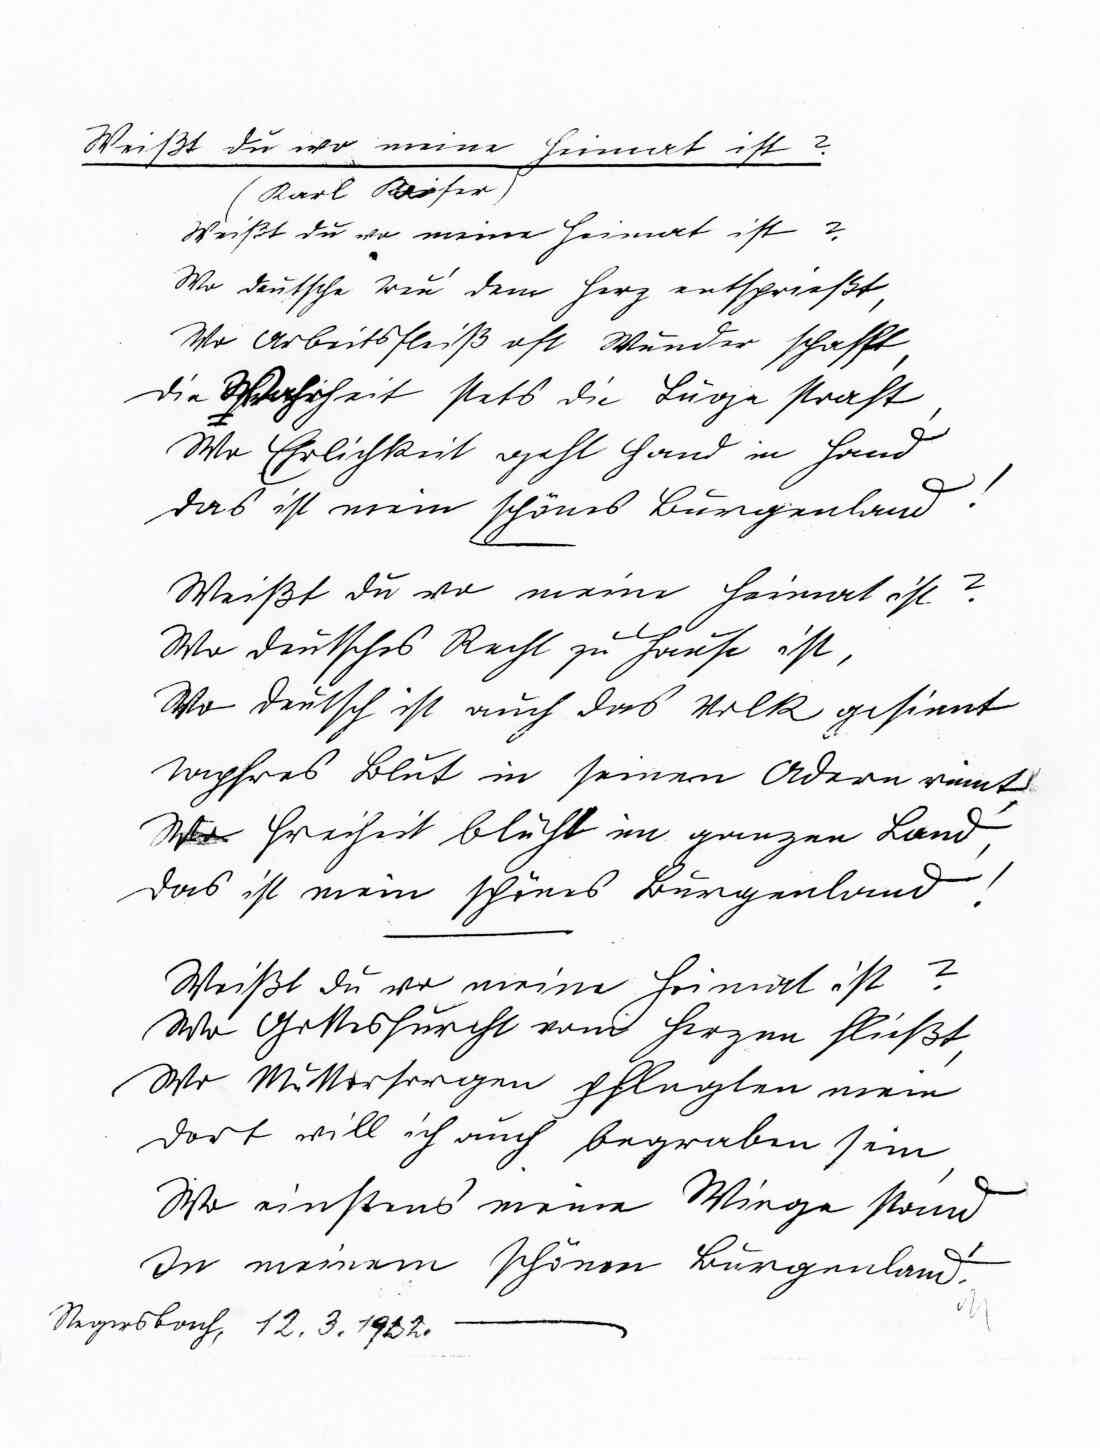 Weißt du wo meine Heimat ist?
(Karl Kaiser)
Weißt du wo meine Heimat ist?
Wo deutsche Treu' dem Herz entsprießt,
Wo Arbeitsfleiß oft Wunder schafft,
die Wahrheit stets die Lüge straft,
Wo Ehrlichkeit geht Hand in Hand
das ist mein schönes Burgenland!
Weißt du wo meine Heimat ist?
Wo deutsches Recht zu Hause ist,
Wo deutsch ist auch das Volk gesinnt
tapfres Blut in seinen Adern rinnt,
Wo Freiheit blüht im ganzen Land,
das ist mein schönes Burgenland!
Weißt du wo meine Heimat ist?
Wo Gottesfurcht vom Herzen fließt,
Wo Muttersorgen pflegten mein
dort will ich auch begraben sein,
Wo einstens meine Wiege stand
In meinem schönen Burgenland!
Stegersbach, 12.3.1922.